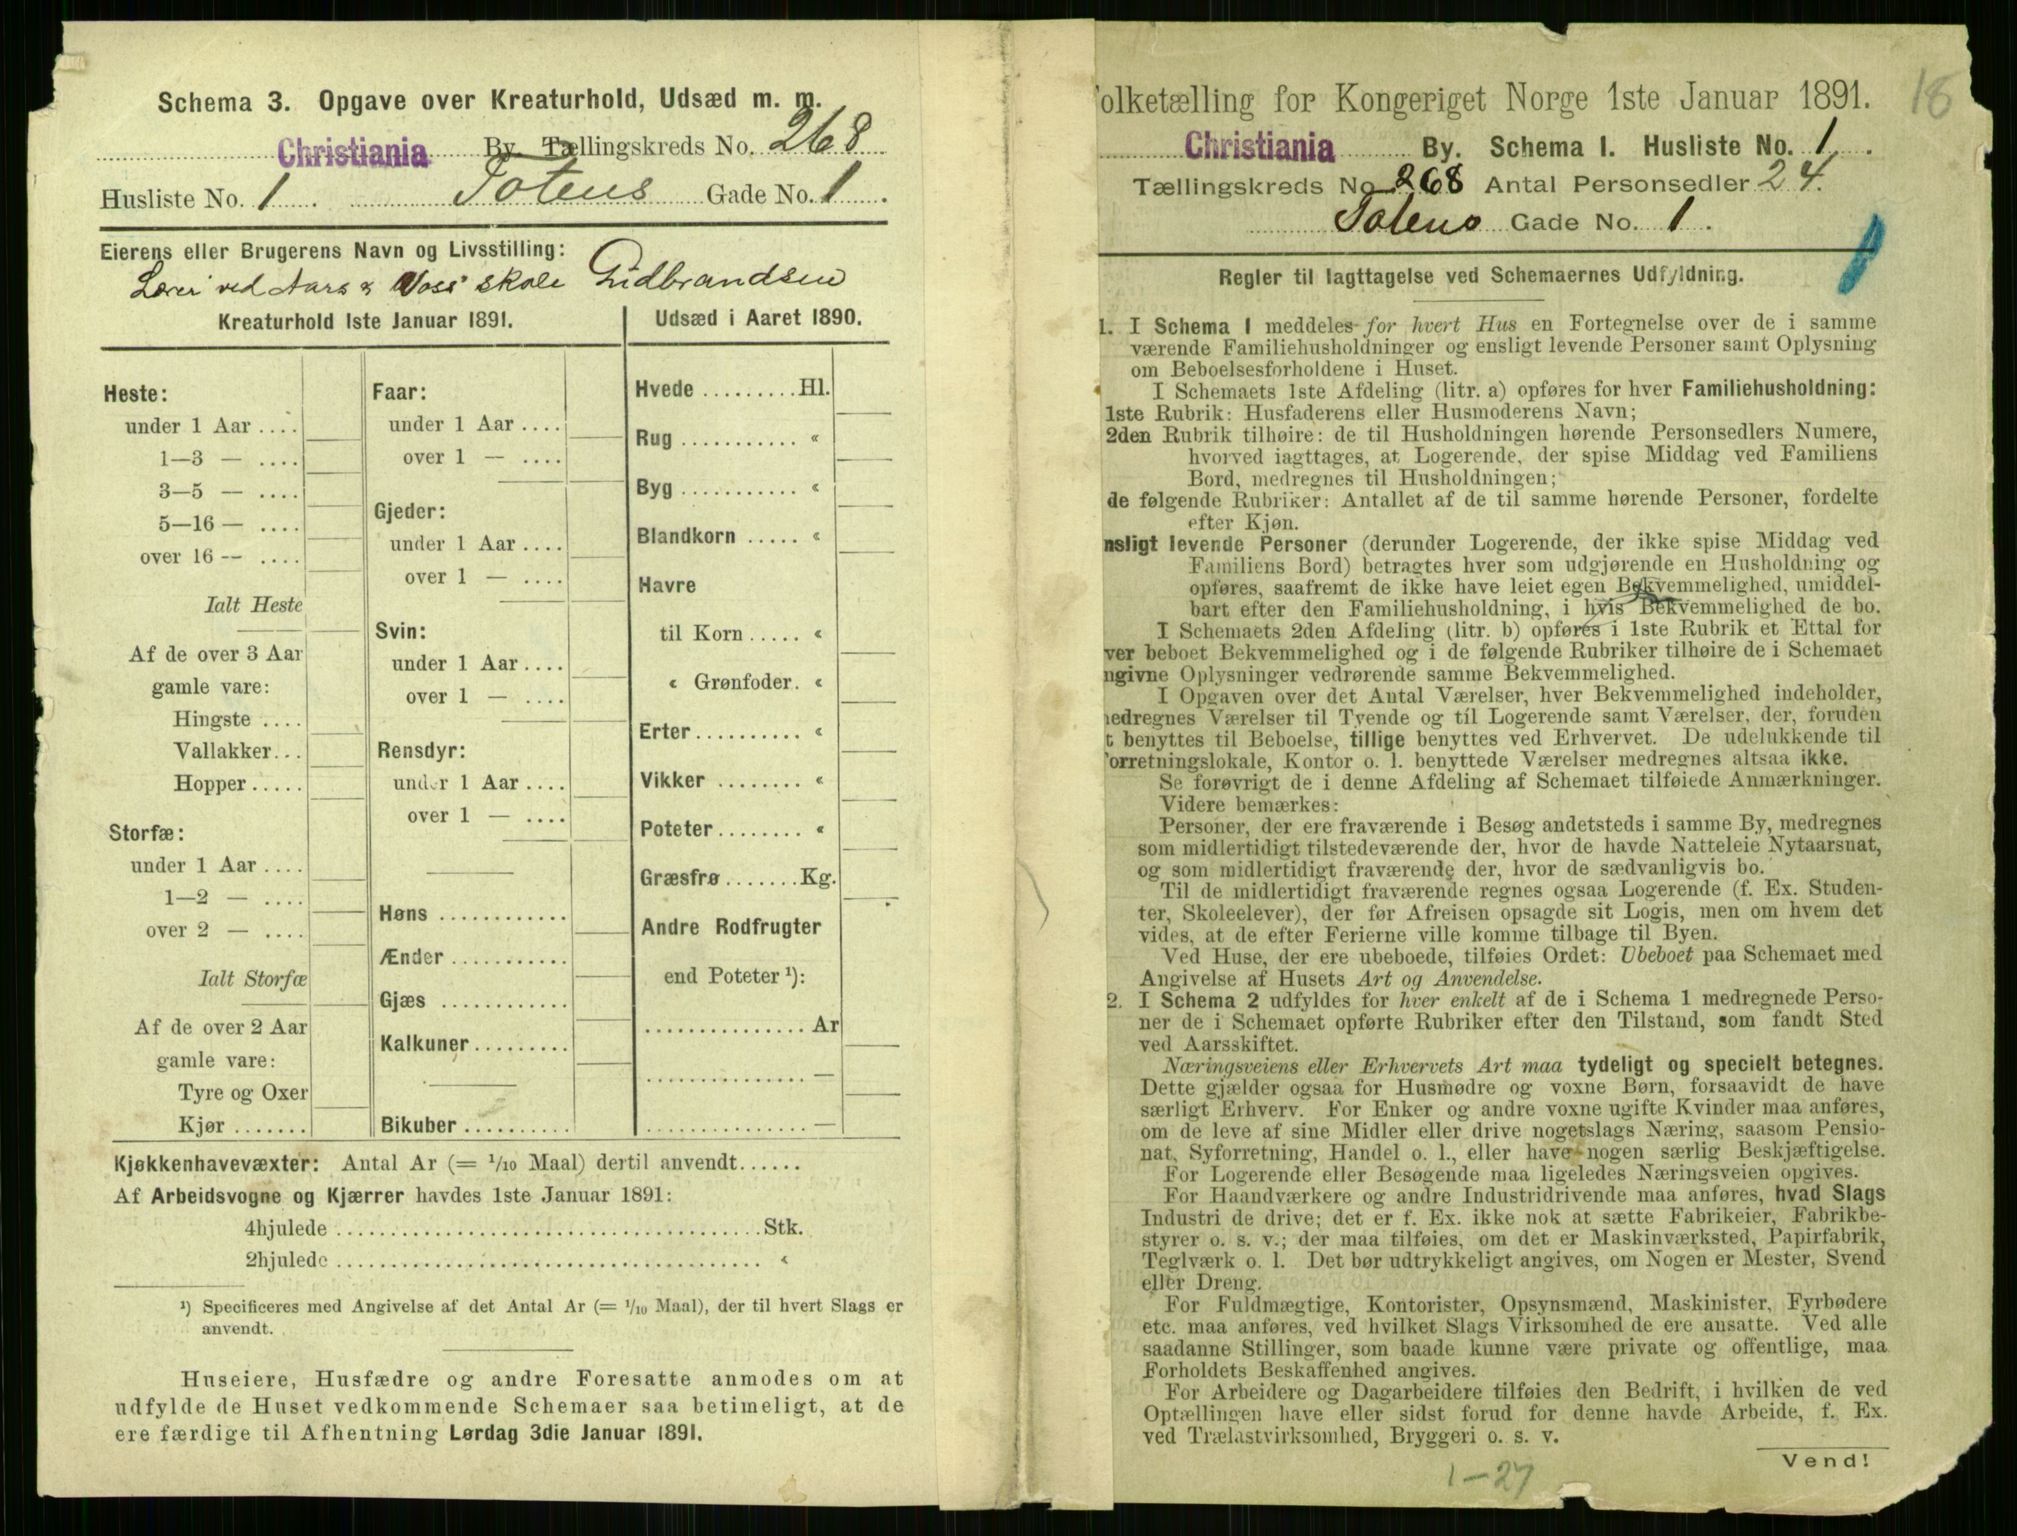 Schema 3. Opgave over Kreaturhold, Udsæd m. m.
Christiania By. Tællingskreds No. 268
Husliste No. 1. Totens Gade No. 1.
Eierens eller Brugerens Navn og Livsstilling:
Lærer ved Aars & Voss' skole Gulbrandsen
Kreaturhold 1ste Januar 1891.
Heste:
under 1 Aar ....
1—3 — ....
3—5 — ....
5—16 — ....
over 16 — ....
Ialt Heste
Af de over 3 Aar
gamle vare:
Hingste ....
Vallakker...
Hopper.....
Storfæ:
under 1 Aar ....
1—2 — ....
over 2 — ....
Ialt Storfæ
Af de over 2 Aar
gamle vare:
Tyre og Oxer
Kjør .......
Faar:
under 1 Aar ....
over 1 — ....
Gjeder:
under 1 Aar ....
over 1 — ....
Svin:
under 1 Aar ....
over 1 — ....
Rensdyr:
under 1 Aar ....
over 1 — ....
Høns ............
Ænder ...........
Gjæs ............
Kalkuner.........
Bikuber ..........
Udsæd i Aaret 1890.
Hvede .........Hl.
Rug ........... «
Byg ........... «
Blandkorn ..... «
Havre
til Korn ..... «
« Grønfoder. «
Erter.......... «
Vikker ........ «
Poteter........ «
Græsfrø .......Kg.
Andre Rodfrugter
end Poteter ¹):
............... Ar
............... —
............... —
Kjøkkenhavevæxter: Antal Ar (= 1/10 Maal) dertil anvendt......
Af Arbeidsvogne og Kjærrer havdes 1ste Januar 1891:
4hjulede .......................................Stk.
2hjulede ....................................... «
¹) Specificeres med Angivelse af det Antal Ar (= 1/10 Maal), der til hvert Slags er
anvendt.
Huseiere, Husfædre og andre Foresatte anmodes om at
udfylde de Huset vedkommende Schemaer saa betimeligt, at de
ere færdige til Afhentning Lørdag 3die Januar 1891.
18
olketælling for Kongeriget Norge 1ste Januar 1891.
Christiania By. Schema 1. Husliste No. 1.
Tællingskreds No 268 Antal Personsedler 24.
Totens Gade No. 1.
Regler til Iagttagelse ved Schemaernes Udfyldning.
1. I Schema 1 meddeles for hvert Hus en Fortegnelse over de i samme
værende Familiehusholdninger og ensligt levende Personer samt Oplysning
om Beboelsesforholdene i Huset.
I Schemaets 1ste Afdeling (litr. a) opføres for hver Familiehusholdning:
1ste Rubrik: Husfaderens eller Husmoderens Navn;
2den Rubrik tilhøire: de til Husholdningen hørende Personsedlers Numere,
hvorved iagttages, at Logerende, der spise Middag ved Familiens
Bord, medregnes til Husholdningen;
de følgende Rubriker: Antallet af de til samme hørende Personer, fordelte
efter Kjøn.
nsligt levende Personer (derunder Logerende, der ikke spise Middag ved
Familiens Bord) betragtes hver som udgjørende en Husholdning og
opføres, saafremt de ikke have leiet egen Bekvemmelighed, umiddel-
bart efter den Familiehusholdning, i hvis Bekvemmelighed de bo.
I Schemaets 2den Afdeling (litr. b) opføres i 1ste Rubrik et Ettal for
ver beboet Bekvemmelighed og i de følgende Rubriker tilhøire de i Schemaet
ngivne Oplysninger vedrørende samme Bekvemmelighed.
I Opgaven over det Antal Værelser, hver Bekvemmelighed indeholder,
nedregnes Værelser til Tyende og til Logerende samt Værelser, der, foruden
t benyttes til Beboelse, tillige benyttes ved Erhvervet. De udelukkende til
orretningslokale, Kontor o. l. benyttede Værelser medregnes altsaa ikke.
Se forøvrigt de i denne Afdeling af Schemaet tilføiede Anmærkninger.
Videre bemærkes:
Personer, der ere fraværende i Besøg andetsteds i samme By, medregnes
som midlertidigt tilstedeværende der, hvor de havde Natteleie Nytaarsnat,
og som midlertidigt fraværende der, hvor de sædvanligvis bo.
Til de midlertidigt fraværende regnes ogsaa Logerende (f. Ex. Studen-
ter, Skoleelever), der før Afreisen opsagde sit Logis, men om hvem det
vides, at de efter Ferierne ville komme tilbage til Byen.
Ved Huse, der ere ubeboede, tilføies Ordet: Ubeboet paa Schemaet med
Angivelse af Husets Art og Anvendelse.
2. I Schema 2 udfyldes for hver enkelt af de i Schema 1 medregnede Perso-
ner de i Schemaet opførte Rubriker efter den Tilstand, som fandt Sted
ved Aarsskiftet.
Næringsveiens eller Erhvervets Art maa tydeligt og specielt betegnes.
Dette gjælder ogsaa for Husmødre og voxne Børn, forsaavidt de have
særligt Erhverv. For Enker og andre voxne ugifte Kvinder maa anføres,
om de leve af sine Midler eller drive nogetslags Næring, saasom Pensio-
nat, Syforretning, Handel o. l., eller have nogen særlig Beskjæftigelse.
For Logerende eller Besøgende maa ligeledes Næringsveien opgives.
For Haandværkere og andre Industridrivende maa anføres, hvad Slags
Industri de drive; det er f. Ex. ikke nok at sætte Fabrikeier, Fabrikbe-
styrer o. s. v.; der maa tilføies, om det er Maskinværksted, Papirfabrik,
Teglværk o. l. Det bør udtrykkeligt angives, om Nogen er Mester, Svend
eller Dreng.
For Fuldmægtige, Kontorister, Opsynsmænd, Maskinister, Fyrbødere
etc. maa anføres, ved hvilket Slags Virksomhed de ere ansatte. Ved alle
saadanne Stillinger, som baade kunne være private og offentlige, maa
Forholdets Beskaffenhed angives.
For Arbeidere og Dagarbeidere tilføies den Bedrift, i hvilken de ved
Optællingen have eller sidst forud for denne havde Arbeide, f. Ex.
ved Trælastvirksomhed, Bryggeri o. s. v.
Vend!
1—27